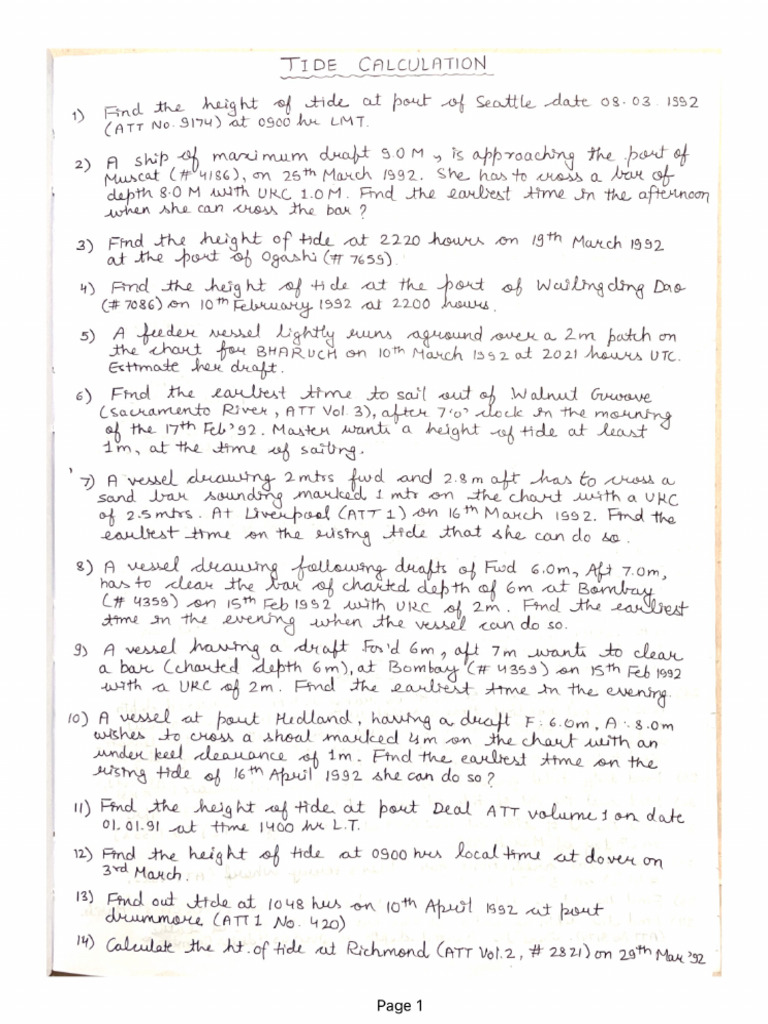 TIDE CALCULATION
1) Find the height of tide at port of Seattle date 08.03.1992
(ATT No. 9174) at 0900 hr LMT.
2) A ship of maximum draft 9.0 M, is approaching the port of
Muscat (# 4186), on 25th March 1992. She has to cross a bar of
depth 8.0 M with UKC 1.0 M. Find the earliest time in the afternoon
when she can cross the bar?
3) Find the height of tide at 2220 hours on 19th March 1992
at the port of Ogashi (# 7659).
4) Find the height of tide at the port of Wailingding Dao
(# 7086) on 10th February 1992 at 2200 hours.
5) A feeder vessel lightly runs aground over a 2m patch on
the chart for BHARUCH on 10th March 1992 at 2021 hours UTC.
Estimate her draft.
6) Find the earliest time to sail out of Walnut
(Sacramento River, ATT Vol. 3), after 7'o' clock in the morning
of the 17th Feb '92. Master wants a height of tide at least
1m, at the time of sailing.
7) A vessel drawing 2 mtrs fwd and 2.8 m aft has to cross a
sand bar sounding marked 1 mtr on the chart with a UKC
of 2.5 mtrs. At Liverpool (ATT 1) on 16th March 1992. Find the
earliest time on the rising tide that she can do so.
8) A vessel drawing following drafts of Fwd 6.0m, Aft 7.0m,
has to clear the bar of charted depth of 6m at Bombay
(# 4359) on 15th Feb 1992 with UKC of 2m. Find the earliest
time in the evening when the vessel can do so.
9) A vessel having a draft For'd 6m, aft 7m wants to clear
a bar (charted depth 6m), at Bombay (# 4359) on 15th Feb 1992
with a UKC of 2m. Find the earliest time in the evening.
10) A vessel at port Hedland, having a draft F: 6.0m, A: 8.0m
wishes to cross a shoal marked 4m on the chart with an
under keel clearance of 1m. Find the earliest time on the
rising tide of 16th April 1992 she can do so?
11) Find the height of tide at port Deal ATT volume 1 on date
01.01.91 at time 1400 hr L.T.
12) Find the height of tide at 0900 hrs local time at dover on
3rd March.
13) Find out tide at 1048 hrs on 10th April 1992 at port
drummore (ATT 1 No. 420)
14) Calculate the ht. of tide at Richmond (ATT Vol. 2, # 2821) on 29th Mar '92
Page 1